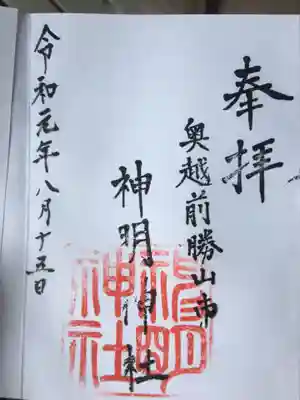 奉拝
奥越前勝山市
神明神社
神明
神社
令和元年八月十五日